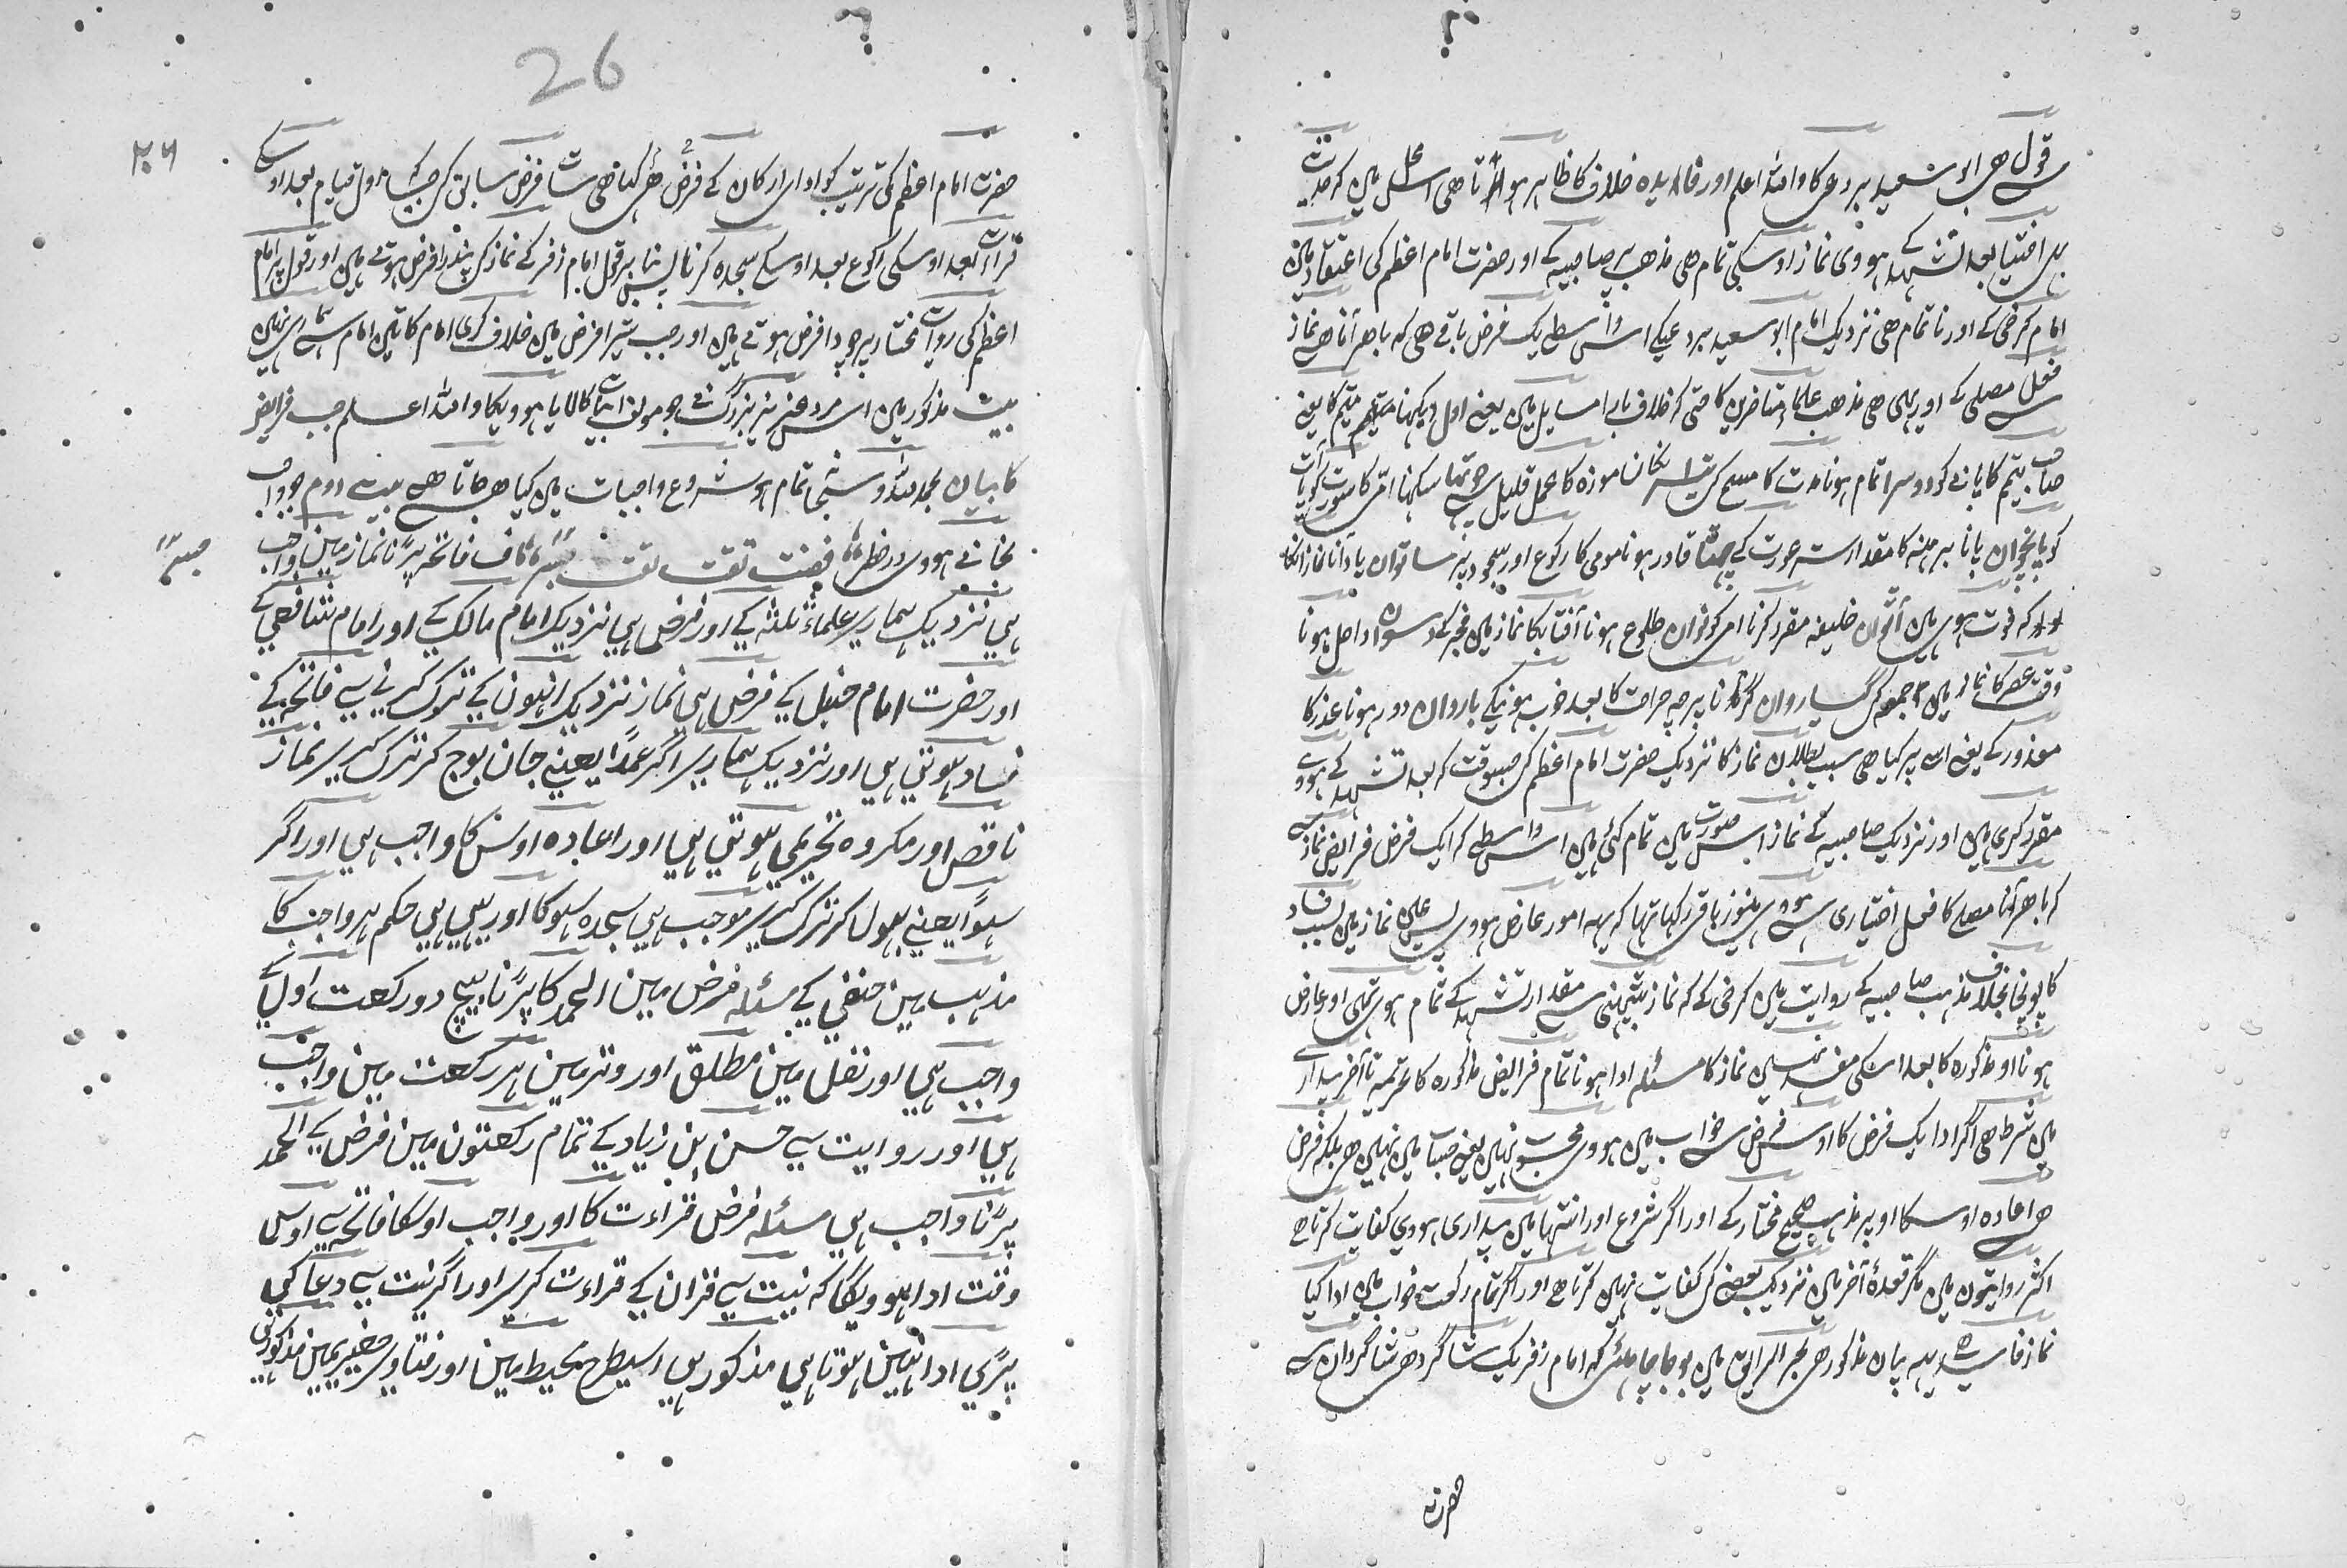 قول هی ابو سعید بردعی کا والله اعلم اور فایده خلاف کا ظاہر ہوتا هی اس محل میں که حدث
بی اختیار بعد تشہد کے ہووی نماز اوسکی تمام هی مذهب پر صاحبیه کے اور حضرت امام اعظم کی اعتقاد میں
امام کرخی کے اور ناتمام هی نزدیک امام ابو سعید بردعی کے اس واسطی یک فرض باقی هی که باهر آنا هی نماز
فعل مصلی کے اور یهی هی مذهب علماء متاخرین کا حتی که خلاف بارا مسایل میں یعنے اول دیکهنا متیمم کا یعنے
صاحب تیمم کا پانی کو دوسرا تمام ہونا مدت کا مسح کی تیسرا نکالنا موزه کا عمل قلیل سے چوتها سیکهنا امی کا سورت کو یا آیت
کو پانچواں پانا برہنه کا مقدار ستر عورت کے چهٹا قادر ہونا مومی کا رکوع اور سجود پر ساتواں یاد آنا نماز
که فوت ہوی ہیں آٹواں خلیفه مقرر کرنا امی کو نواں طلوع ہونا آفتاب کا نماز میں فجر کے دسواں داخل ہونا
وقت عصر کا نماز میں جمعه کی گیارواں گر نا پرچه جراحت کا بعد خوب ہونیکے بارواں دور ہونا عذر کا
معذور کے یعنے اس پر کیا هی سبب بطلان نماز کا نزدیک حضرت امام اعظم کی جسوقت که بعد تشہد کے ہووے
مقرر کری ہیں اور نزدیک صاحبیه کے نماز اس صورت میں تمام کئے ہیں اس واسطے که ایک فرض فرایض نماز سے
که باهر آنا مصلے کا فعل اختیاری سے ہووی ہنوز باقی رکها تها که یہه امور عارض ہووی پس عین نماز میں سبب فساد
کا پونچا بخلاف مذہب صاحبیه کے روایت میں کرخی کے که نماز بیٹهنی سے مقدار تشہد کے تمام ہوی تهی اور عارض
ہونا امور مذکوره کا بعد اسکی مفسد نہیں نماز کا مسئله ادا ہونا تمام فرایض مذکوره کا تحریمه تا آخر بیداری
میں شرط هی اگر ادا یک فرض کا اوس فرض سی خواب میں ہووی محسوب نہیں یعنے حساب میں نہیں هی بلکه فرض
هی اعاده اوسکا اوپر مذہب صحیح مختار کے اور اگر شروع اور انتہا میں بیداری ہووی کفایت کرتا هے
اکثر روایتوں میں مگر قعدهٔ آخر میں نزدیک بعضے کی کفایت نہیں کرتا هے اور اگر تمام رکعت خواب میں ادا کیا
نماز فاسد هی یہه بیان مذکور هی بحر الرایق میں بوجا چاہئے که امام زفر یک شاگرد هی شاگرداں سے
حضرت
26
۲۶
حضرت امام اعظم کی ترتیب کو ادا ارکان کے فرض کیا هی سات فرض سابق کی جیسا که اول قیام بعد اوسکے
قراءت بعد اوسکی رکوع بعد اوسکے سجده کرنا پس بنا بر قول امام زفر کے نماز کی پندرا فرض ہوتے ہیں اور قول پر امام
اعظم کی روایت مختار پر چودا فرض ہوتے ہیں اور جب تیرا فرض میں خلاف کری امام کا تین امام سے شمار نہیں
بیت مذکور میں اس مرد عزیز بزرگ نے جو مولف ابیات کا لایا ہوویگا والله اعلم جب فرایض
کا بیان بحمد الله و سبحانه تمام ہو شروع واجبات میں کیا جاتا هے بیت دوم جو واجب
فاتحه پڑنا نماز مین واجب
ہی نزدیک ہماری علماء ثلثه کے اور فرض ہی نزدیک امام مالک کے اور امام شافعی کے
اور حضرت امام حنبل کے فرض ہی نماز نزدیک انہون کے ترک کرنے سے فاتحه کے
فساد ہوتی ہی اور نزدیک ہماری اگر عمداً یعنے جان بوج کر ترک کری نماز
ناقص اور مکروه تحریمی ہوتی ہی اور اعاده اوس کا واجب ہی اور اگر
سہواً یعنے بہول کر ترک کری موجب ہی سجده سہو کا اور یہی ہی حکم ہر واجب کا
مذہب مین حنفی کے مسئله فرض مین الحمد کا پڑنا بیچ دو رکعت اول کے
واجب ہی اور نفل مین مطلق اور وتر مین ہر رکعت مین واجب
ہی اور روایت سے حسن بن زیاد کے تمام رکعتون مین فرض کے الحمد
پڑنا واجب ہی مسئله فرض قراءت کا اور واجب اوسکا فاتحه سے اوسی
وقت ادا ہوویگا که نیت سے قران کے قراءت کری اور اگر نیت سے دعا کی
پڑی ادا نہین ہوتا ہی مذکور ہی اسیطرح محیط مین اور فتاوی صغیری مین مذکور ہی